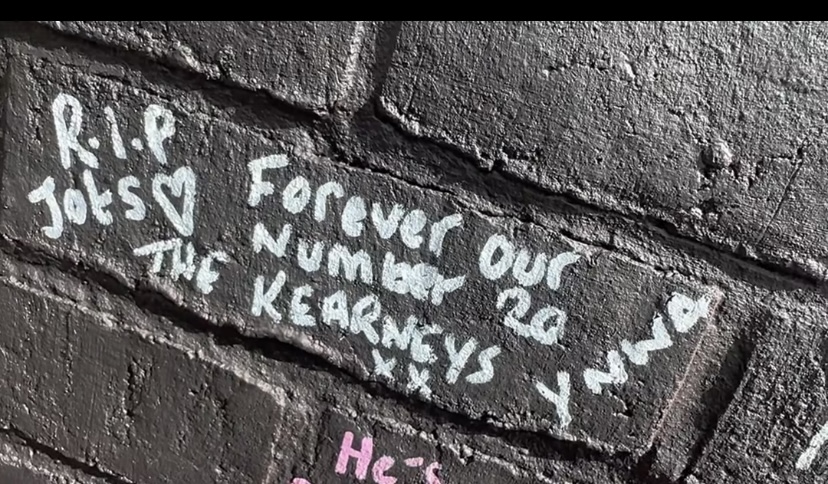 R.I.P
Jots♡
Forever our
Number 20
THE KEARNEYS
xx
YNWA
He's